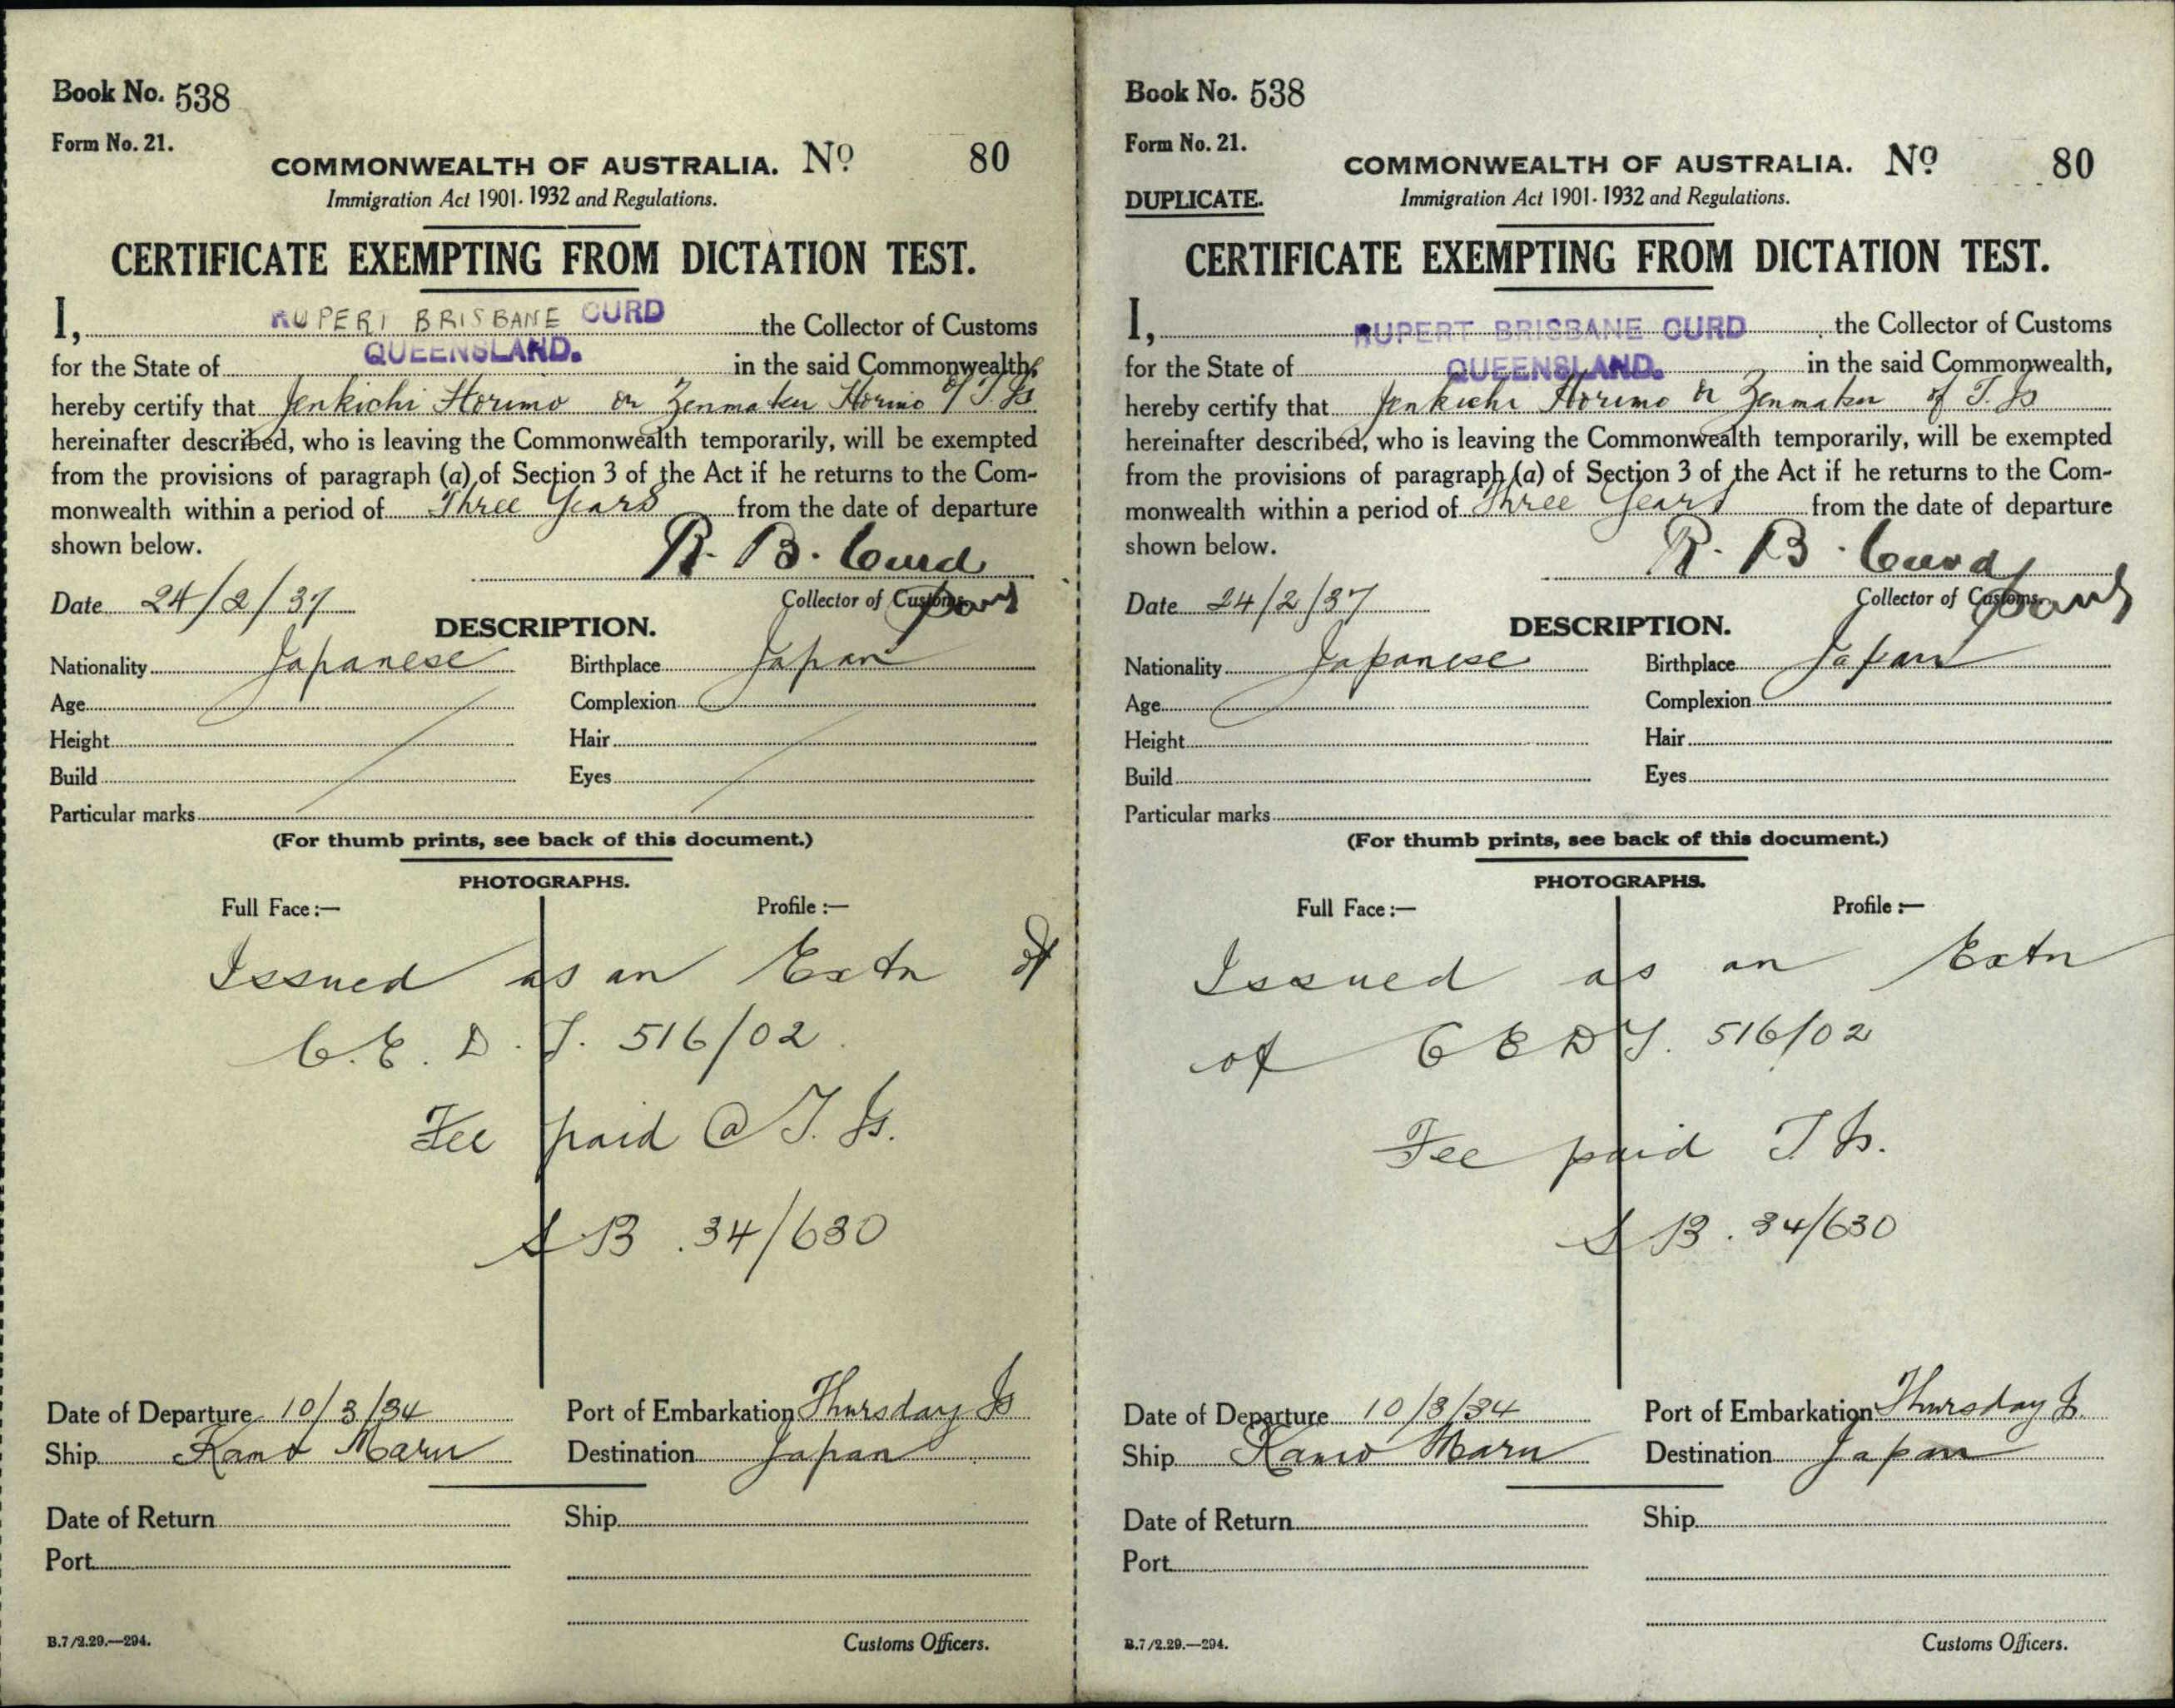 Book No. 538
Form No. 21.
COMMONWEALTH OF AUSTRALIA. Nº 80
Immigration Act 1901-1932 and Regulations.
CERTIFICATE EXEMPTING FROM DICTATION TEST.
I, RUPERT BRISBANE CURD the Collector of Customs
for the State of QUEENSLAND. in the said Commonwealth,
hereby certify that Jenkichi Horimo or Zenmatsu Horimo of T. Is
hereinafter described, who is leaving the Commonwealth temporarily, will be exempted
from the provisions of paragraph (a) of Section 3 of the Act if he returns to the Com-
monwealth within a period of Three Years from the date of departure
shown below.
R. B. Curd
Date 24/2/37 Collector of Customs
DESCRIPTION.
Nationality Japanese Birthplace Japan
Age Complexion
Height Hair
Build Eyes
Particular marks
(For thumb prints, see back of this document.)
PHOTOGRAPHS.
Full Face :— Profile :—
Issued as an Extn of
C.E.D.T. 516/02.
Fee paid @ T. Is.
SB. 34/630
Date of Departure 10/3/34 Port of Embarkation Thursday Is
Ship Kamo Maru Destination Japan
Date of Return Ship
Port
B.7/2.29.—294. Customs Officers.
Book No. 538
Form No. 21.
COMMONWEALTH OF AUSTRALIA. Nº 80
DUPLICATE. Immigration Act 1901-1932 and Regulations.
CERTIFICATE EXEMPTING FROM DICTATION TEST.
I, RUPERT BRISBANE CURD the Collector of Customs
for the State of QUEENSLAND. in the said Commonwealth,
hereby certify that Jenkichi Horimo or Zenmatsu of T. Is
hereinafter described, who is leaving the Commonwealth temporarily, will be exempted
from the provisions of paragraph (a) of Section 3 of the Act if he returns to the Com-
monwealth within a period of Three Years from the date of departure
shown below.
R. B. Curd
Date 24/2/37 Collector of Customs
DESCRIPTION.
Nationality Japanese Birthplace Japan
Age Complexion
Height Hair
Build Eyes
Particular marks
(For thumb prints, see back of this document.)
PHOTOGRAPHS.
Full Face :— Profile :—
Issued as an Extn
of CEDT. 516/02
Fee paid T Is.
SB. 34/630
Date of Departure 10/3/34 Port of Embarkation Thursday Is.
Ship Kamo Maru Destination Japan
Date of Return Ship
Port
B.7/2.29.—294. Customs Officers.